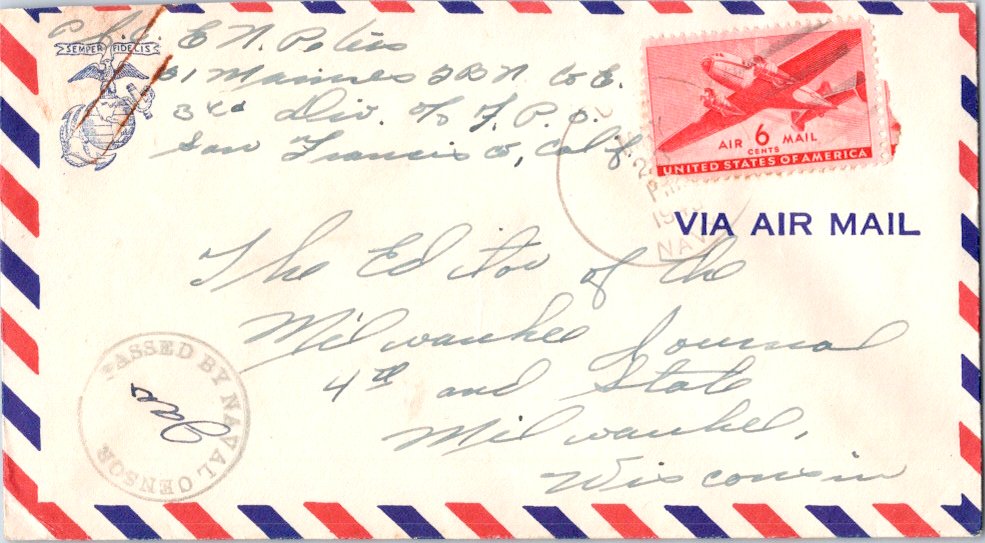 P.f.c. E N. Peters
SEMPER FIDELIS
31 Marines 3 BN Co E.
3rd Div. c/o F. P. O.
San Francisco, Calif
AIR 6 MAIL
CENTS
UNITED STATES OF AMERICA
NAVY
VIA AIR MAIL
The Editor of the
Milwaukee Journal
4th and State
Milwaukee,
Wisconsin
PASSED BY NAVAL CENSOR